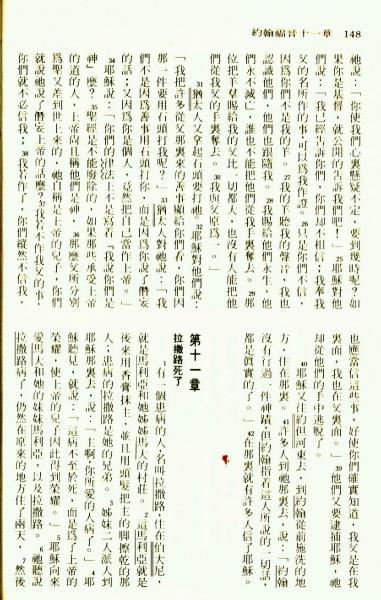 約翰福音十一章 148
祂說：「你使我們心裏懸疑不定，要到幾時呢？如
果你是基督，就公開的告訴我們吧！」25耶穌對他
們說：「我已經告訴你們，你們卻不相信；我奉我
父的名所作的事，可以為我作證。26只是你們不信，
因為你們不是我的羊。27我的羊聽我的聲音，我也
認識他們，他們也跟隨我。28我賜給他們永生，他
們永不滅亡，誰也不能把他們從我手裏奪去。29那
位把羊羣賜給我的父比一切都大，也沒有人能把他
們從我父的手裏奪去。30我與父原為一。」
31猶太人又拿起石頭要打祂。32耶穌對他們說：
「我把許多從父那裏來的善事顯給你們看，你們因
那一件要用石頭打我呢？」33猶太人對祂說：「我
們不是因為善事用石頭打你，而是因為你說了僭妄
的話；又因為你是個人，竟然把自己當作上帝。」
34耶穌說：「你們的律法上不是寫着『我說你們是
神』麼？35聖經是不能廢除的，如果那些承受上帝
的道的人，上帝尚且稱他們是神，36那麼父所分別
為聖又差到世上來的，祂自稱是上帝的兒子，你們
就說祂說了僭妄上帝的話麼？37我若不作我父的事，
你們就不必信我；38我若作了，你們縱然不信我，
也應當信這些事，好使你們確實知道，我父是在我
裏面，我也在父裏面。」39他們又要逮捕耶穌，祂
卻從他們的手中逃脫了。
40耶穌又往約但河東去，到約翰從前施洗的地
方，住在那裏。41許多人到祂那裏去，說：「約翰
沒有行過一件神蹟，但約翰指着這人所說的一切話，
都是真實的了。」42在那裏就有許多人信了耶穌。
第十一章
拉撒路死了
1有一個患病的人，名叫拉撒路，住在伯大尼，
就是馬利亞和她姊姊馬大的村莊。2這馬利亞就是
後來用香膏抹主，並且用頭髮把主的腳擦乾的那
人；患病的拉撒路是她的兄弟。3姊妹二人派人到
耶穌那裏去，說：「主啊，你所愛的人病了。」4耶
穌聽見，就說：「這病不至於死，而是為了上帝的
榮耀，使上帝的兒子因此得到榮耀。」5耶穌向來
愛馬大和她的妹妹馬利亞，以及拉撒路。6祂聽說
拉撒路病了，仍然在原來的地方住了兩天，7然後